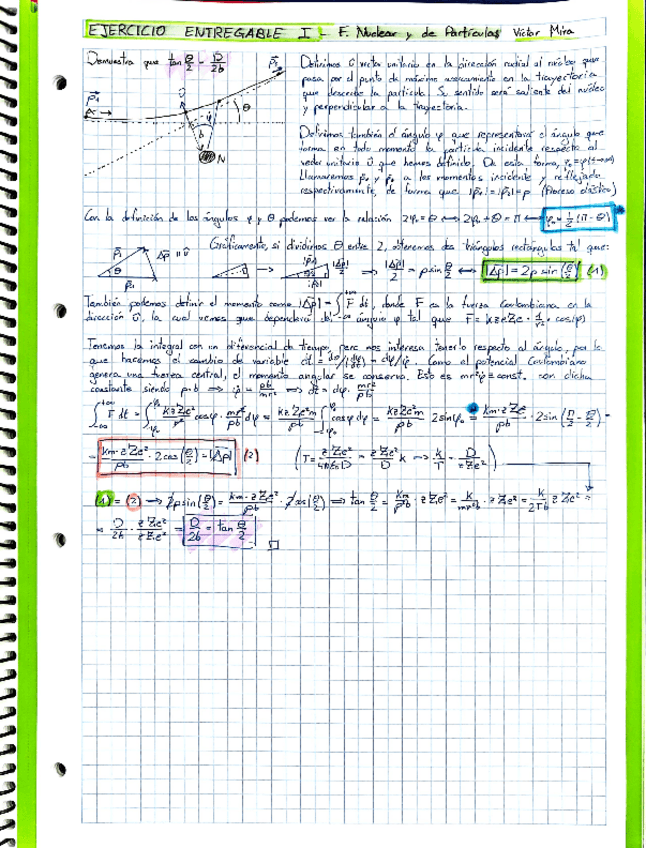 EJERCICIO ENTREGABLE I - F. Nuclear y de Partículas Víctor Mira
Demuestra que tan θ/2 = D/2b
Definimos û vector unitario en la dirección radial al núcleo que
pasa por el punto de máximo acercamiento en la trayectoria
que describe la partícula. Su sentido será saliente del núcleo
y perpendicular a la trayectoria.
p₁
p₀
û
φ
θ
b
N
Definimos también el ángulo φ que representará el ángulo que
forma en todo momento la partícula incidente respecto al
vector unitario û que hemos definido. De esta forma, φ₀ = φ(t→∞)
Llamaremos p₀ y p₁ a los momentos incidente y reflejado
respectivamente, de forma que |p₀| = |p₁| = p (Proceso elástico)
Con la definición de los ángulos φ y θ podemos ver la relación 2φ₀ + θ = π ⟷ φ₀ = 1/2 (π - θ)
Gráficamente, si dividimos θ entre 2, obtenemos dos triángulos rectángulos tal que:
p₁ Δp ∥ û θ p₀
→ |p₁| |Δp|/2 |p₀| ⟹ |Δp|/2 = p sin θ/2 ⟷ |Δp| = 2p sin(θ/2) (1)
También podemos definir el momento como |Δp| = ∫ F dt, donde F es la fuerza Coulombiana en la
dirección û, la cual vemos que dependerá del ángulo φ tal que F = kzZe² · 1/r² · cos(φ)
Tenemos la integral con un diferencial de tiempo, pero nos interesa tenerlo respecto al ángulo, por lo
que hacemos el cambio de variable dt = dφ/(dφ/dt) = dφ/φ̇. Como el potencial Coulombiano
genera una fuerza central, el momento angular se conserva. Esto es mr²φ̇ = const. con dicha
constante siendo p·b ⟹ φ̇ = pb/mr² ⟹ dt = dφ · mr²/pb
∫ F dt = ∫ kzZe²/r² cosφ · mr²/pb dφ = kzZe²m/pb ∫ cosφ dφ = kzZe²m/pb 2 sinφ₀ = km·zZe²/pb · 2 sin(π/2 - θ/2) =
= km·zZe²/pb · 2cos(θ/2) = |Δp| (2) (T = zZe²/4πε₀D = zZe²/D k ⟶ k/T = D/zZe²)
(1) = (2) ⟶ 2p sin(θ/2) = km·zZe²/pb · 2cos(θ/2) ⟹ tan θ/2 = km/p²b · zZe² = k/mv²b · zZe² = k/2Tb zZe² =
= D/2b · zZe²/zZe² = D/2b = tan θ/2 □